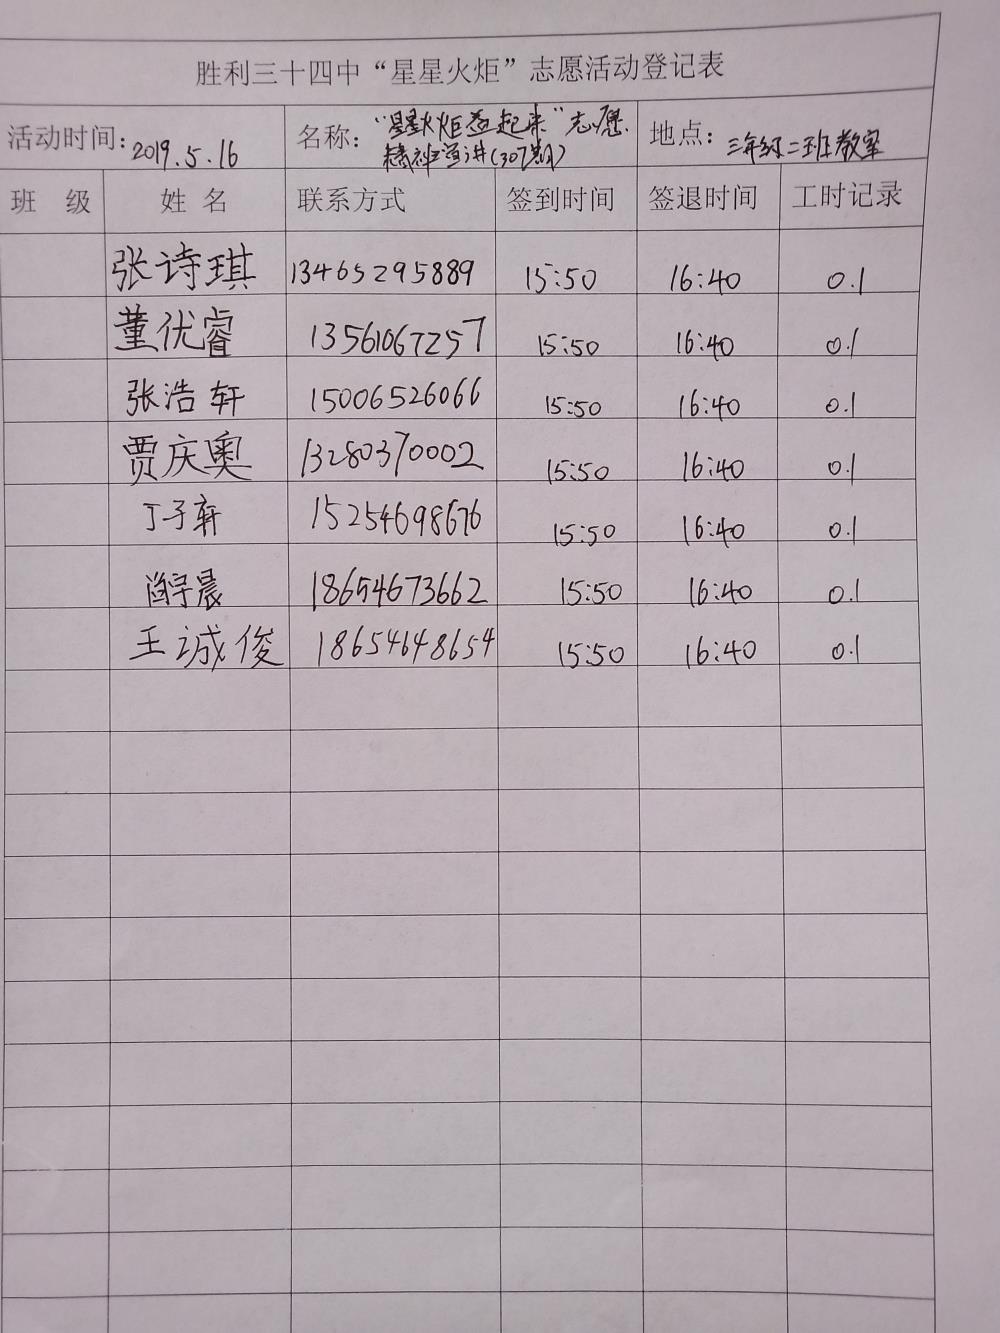 胜利三十四中“星星火炬”志愿活动登记表
活动时间: 2019.5.16 名称: “星星火炬益起来”志愿精神宣讲(307期) 地点: 三年级二班教室
班 级 姓 名 联系方式 签到时间 签退时间 工时记录
张诗琪 13465295889 15:50 16:40 0.1
董优睿 13561067257 15:50 16:40 0.1
张浩轩 15006526066 15:50 16:40 0.1
贾庆奥 13280370002 15:50 16:40 0.1
丁子轩 15254698676 15:50 16:40 0.1
宇晨 18654673662 15:50 16:40 0.1
王诚俊 18654648654 15:50 16:40 0.1